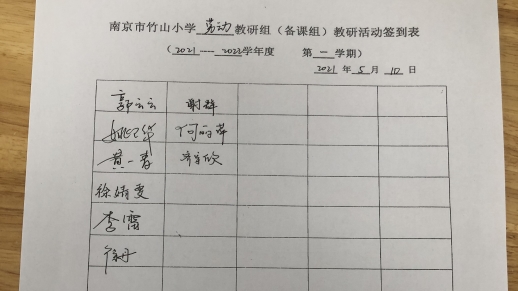 南京市竹山小学 劳动 教研组（备课组）教研活动签到表
（2021——2022学年度 第一学期）
2021 年 5 月 10 日
郭云云 谢群
黄一春
徐婧雯
李霞
徐丹